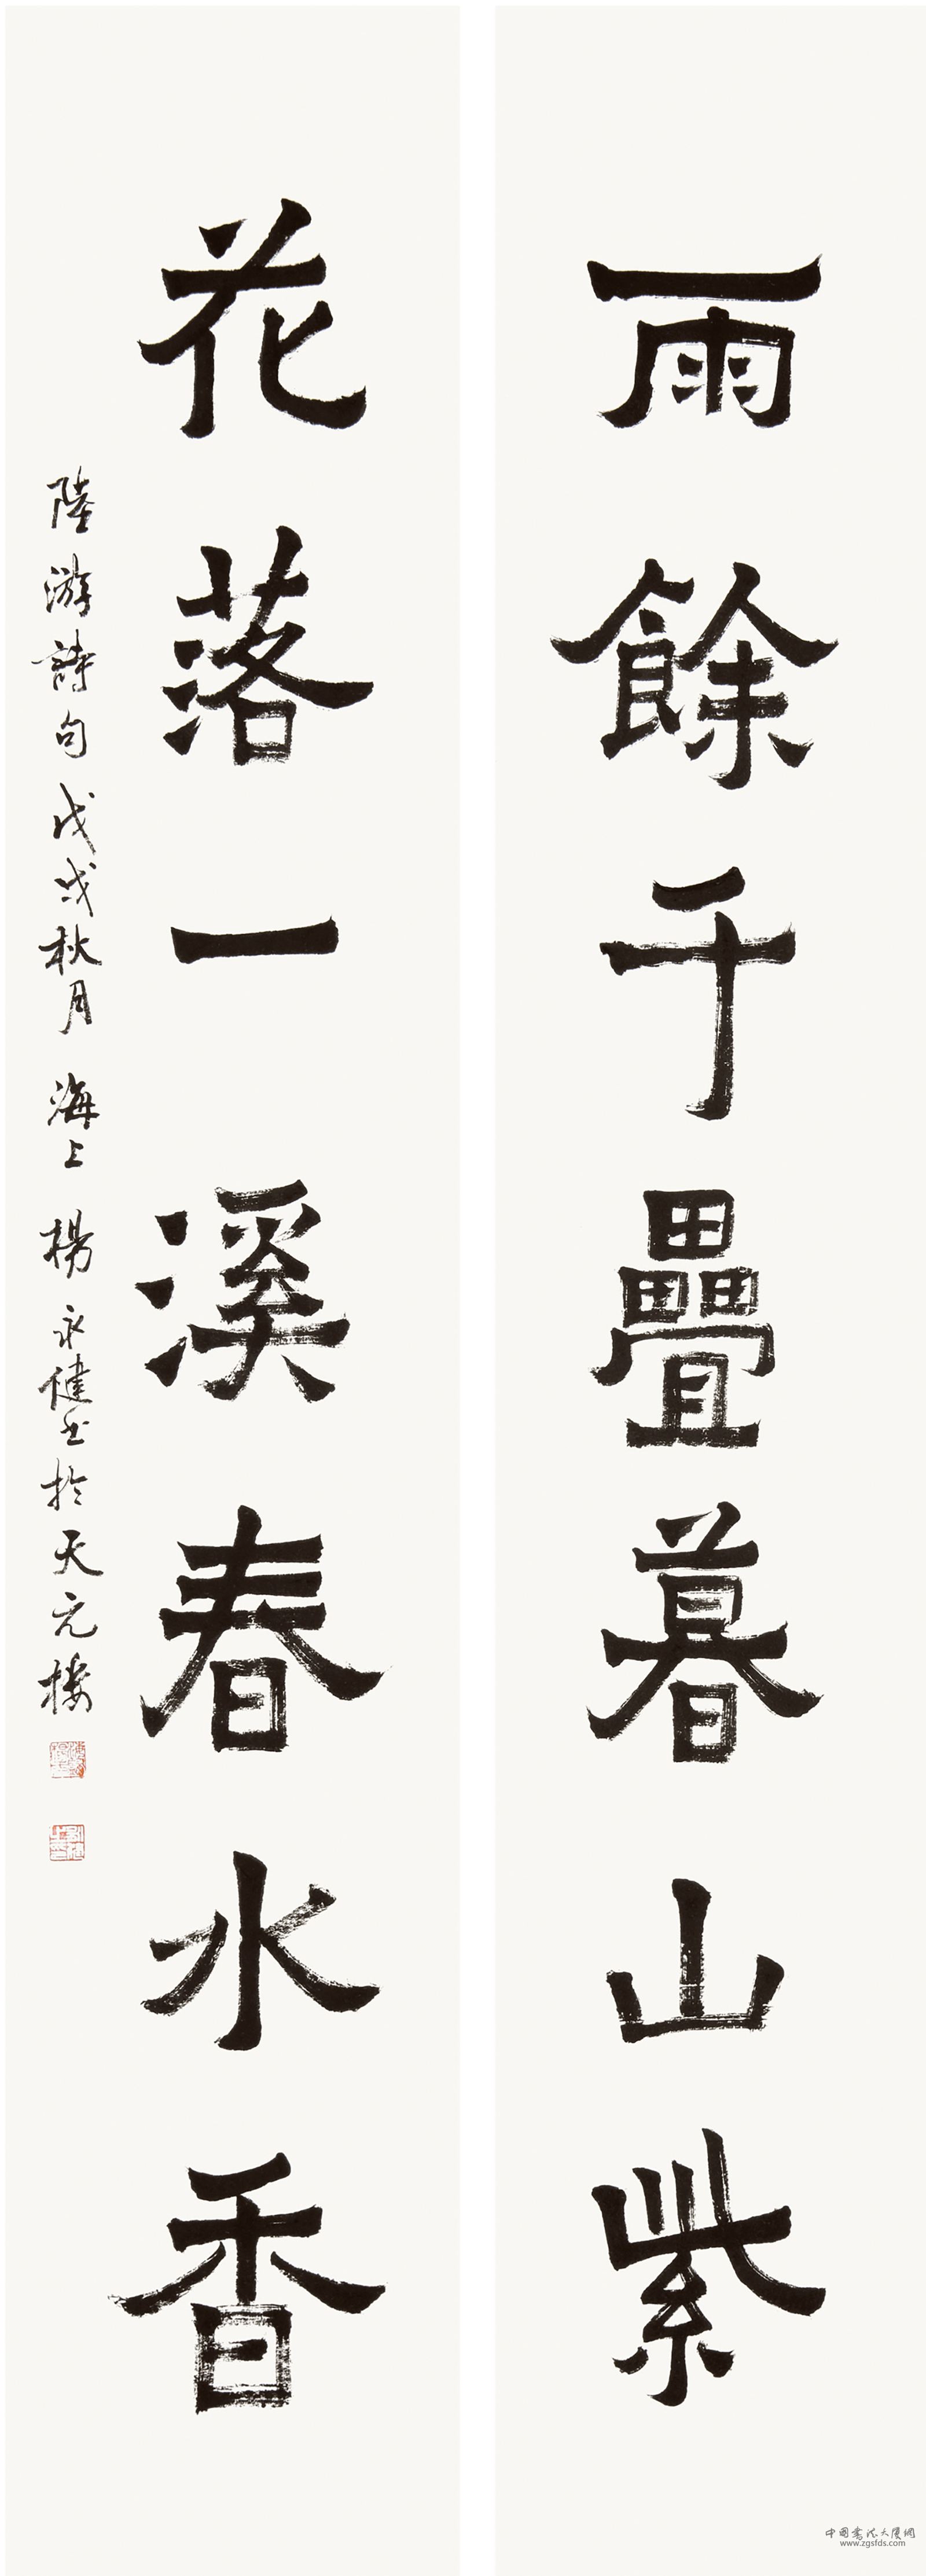 雨餘千疊暮山紫
花落一溪春水香
陸游詩句戊戌秋月海上楊永健书於天元楼
中国书法大厦網
www.zgsfds.com